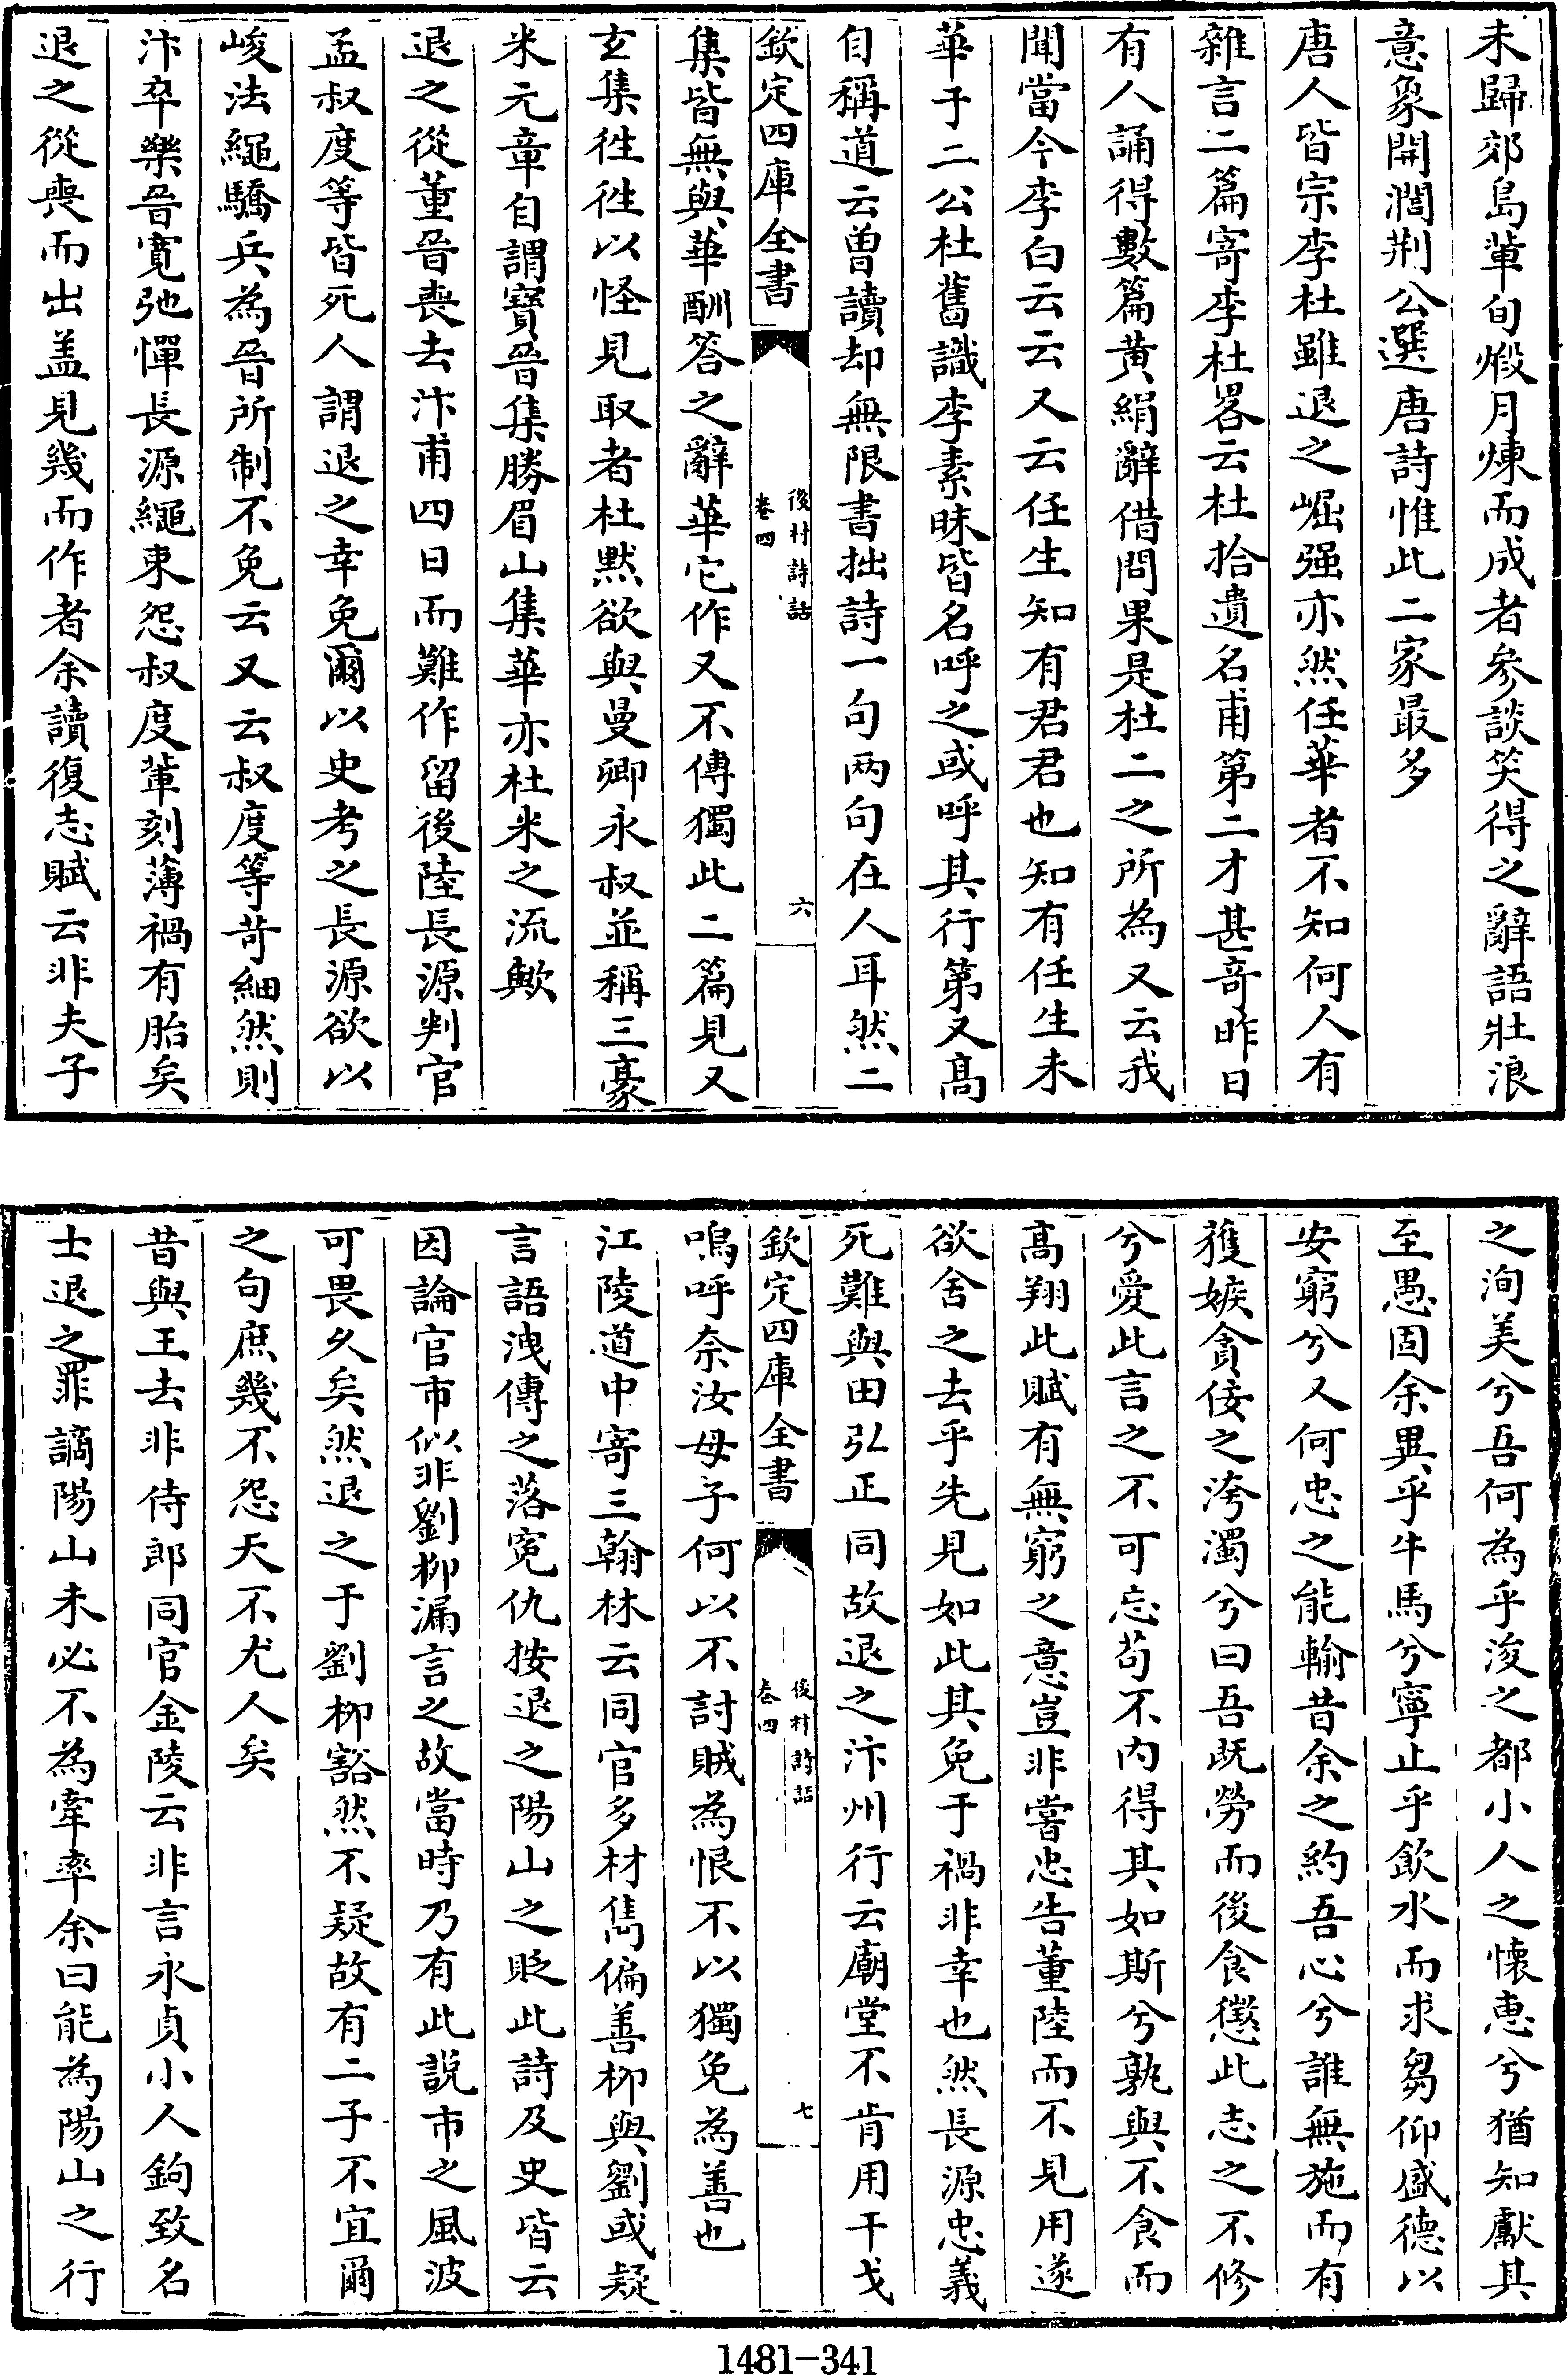 未歸郊島輩旬煅月煉而成者參談笑得之辭語壯浪
意象開濶荆公選唐詩惟此二家最多
唐人皆宗李杜雖退之崛强亦然任華者不知何人有
雜言二篇寄李杜畧云杜拾遺名甫第二才甚奇昨日
有人誦得數篇黄絹辭借問果是杜二之所為又云我
聞當今李白云云又云任生知有君君也知有任生未
華于二公杜舊識李素昧皆名呼之或呼其行第又髙
自稱道云曽讀却無限書拙詩一句两句在人耳然二
欽定四庫全書
後村詩話
卷四
六
集皆無與華酬答之辭華它作又不傳獨此二篇見又
玄集徃徃以怪見取者杜黙欲與曼卿永叔並稱三豪
米元章自謂寳晉集勝眉山集華亦杜米之流歟
退之從董晉喪去汴甫四日而難作留後陸長源判官
孟叔度等皆死人謂退之幸免爾以史考之長源欲以
峻法繩驕兵為晉所制不免云又云叔度等苛細然則
汴卒樂晉寛弛憚長源繩束怨叔度輩刻薄禍有胎矣
退之從喪而出盖見幾而作者余讀復志賦云非夫子
之洵美兮吾何為乎浚之都小人之懐惠兮猶知獻其
至愚固余異乎牛馬兮寧止乎飲水而求芻仰盛德以
安窮兮又何忠之能輸昔余之約吾心兮誰無施而有
獲嫉貪佞之洿濁兮曰吾既勞而後食懲此志之不修
兮愛此言之不可忘苟不内得其如斯兮孰與不食而
髙翔此賦有無窮之意豈非嘗忠告董陸而不見用遂
欲舍之去乎先見如此其免于禍非幸也然長源忠義
死難與田弘正同故退之汴州行云廟堂不肯用干戈
欽定四庫全書
後村詩話
卷四
七
嗚呼奈汝母子何以不討賊為恨不以獨免為善也
江陵道中寄三翰林云同官多材雋偏善柳與劉或疑
言語洩傳之落寃仇按退之陽山之貶此詩及史皆云
因論官市似非劉柳漏言之故當時乃有此説市之風波
可畏乆矣然退之于劉柳豁然不疑故有二子不宜爾
之句庶幾不怨天不尤人矣
昔與王去非侍郎同官金陵云非言永貞小人鉤致名
士退之罪謫陽山未必不為牽率余曰能為陽山之行
1481-341